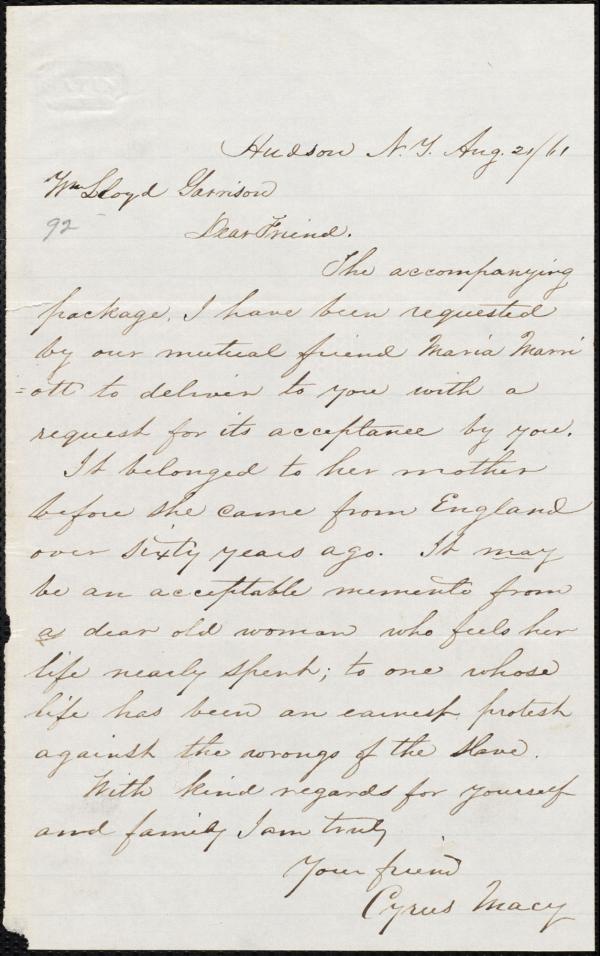 Hudson N.Y. Aug. 21/61
Wm Lloyd Garrison
92
Dear Friend.
The accompanying
package, I have been requested
by our mutual friend Maria Marri
=ott to deliver to you with a
request for its acceptance by you.
It belonged to her mother
before she came from England
over sixty years ago. It may
be an acceptable memento from
a dear old woman who feels her
life nearly spent; to one whose
life has been an earnest protest
against the wrongs of the slave.
With kind regards for yourself
and family I am truly
Your friend
Cyrus Macy